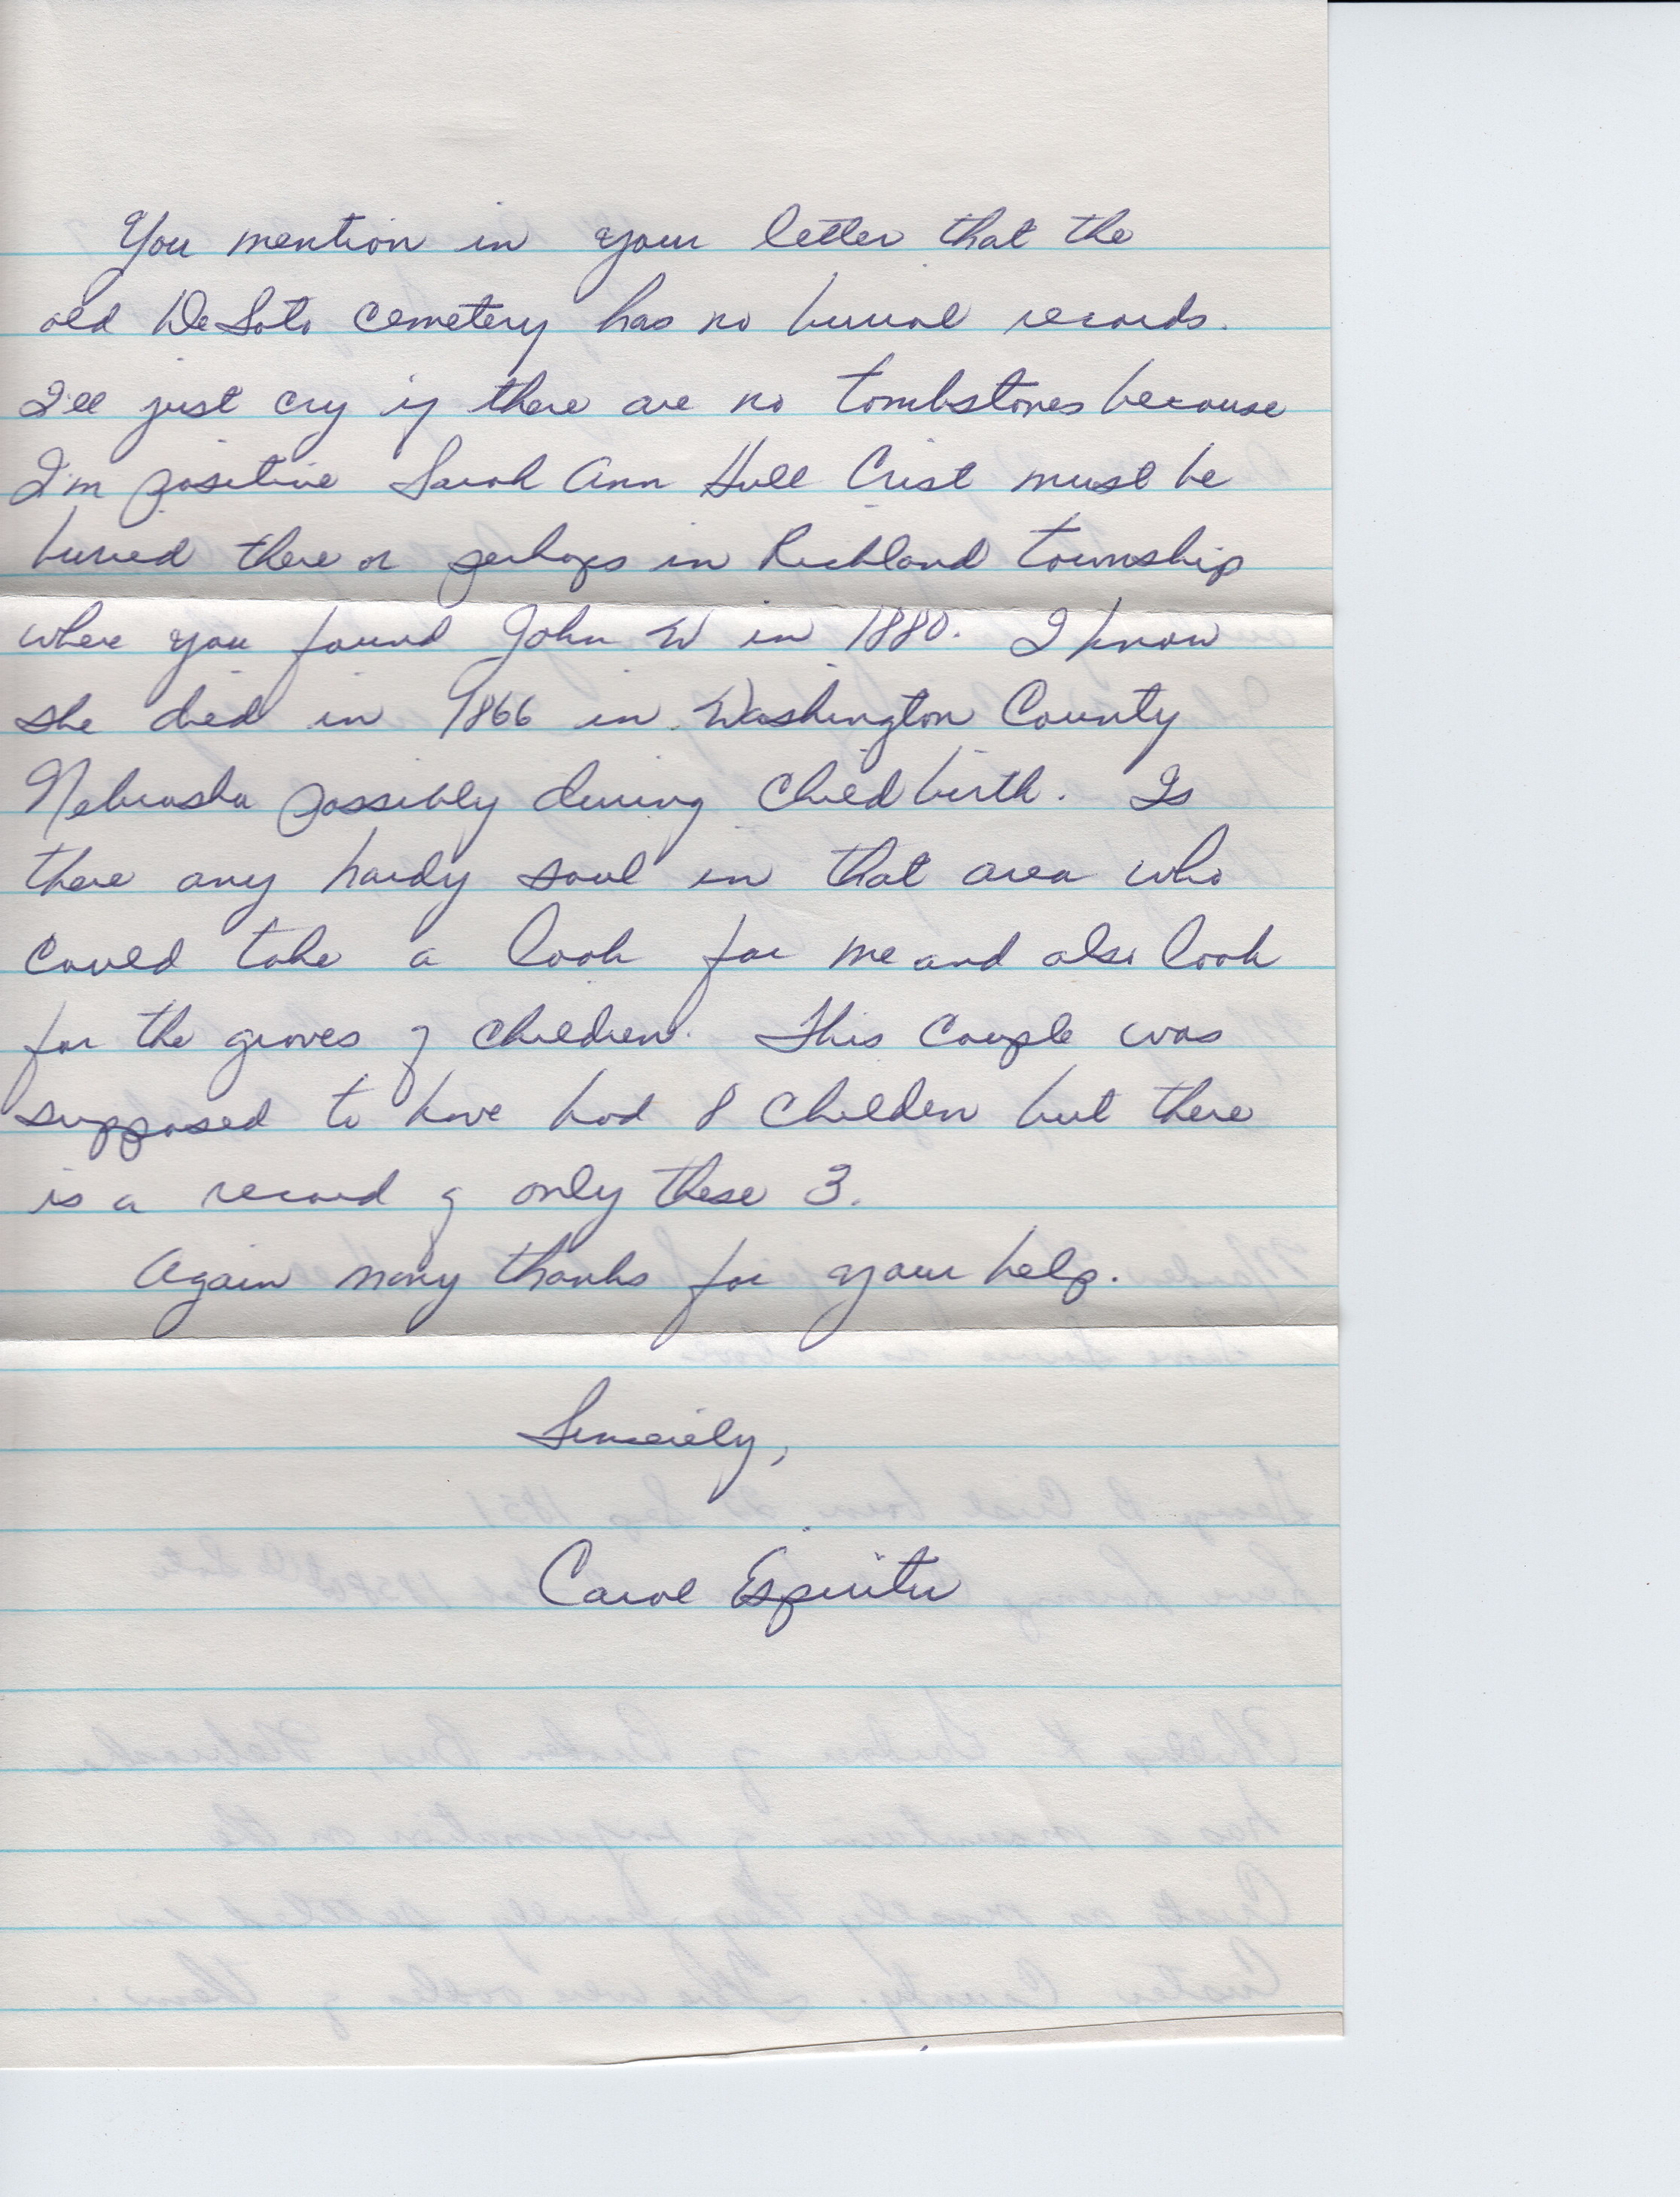 You mention in your letter that the
old DeSoto Cemetery has no burial records.
I'll just cry if there are no tombstones because
I'm positive Sarah Ann Hull Crist must be
buried there or perhaps in Richland township
where you found John W in 1880. I know
she died in 1866 in Washington County
Nebraska possibly during Childbirth. Is
there any hardy soul in that area who
could take a look for me and also look
for the graves of children. This Couple was
supposed to have had 8 Children but there
is a record of only these 3.
Again many thanks for your help.
Sincerely,
Carol Espiritu